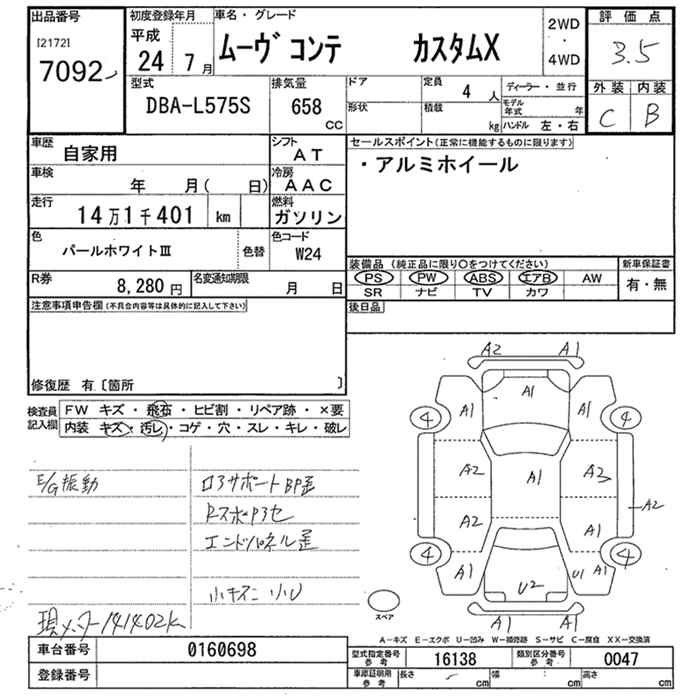 出品番号 初度登録年月 車名・グレード 評価点
[2172] 平成 2WD
7092 24年 7月 ムーヴ コンテ カスタムX ・ 4WD 3.5
型式 排気量 ドア 定員 4人 ディーラー・並行 外装 内装
DBA-L575S 658 cc 形状 積載 kg モデル年式 年 C B
ハンドル 左・右
車歴 自家用 シフト AT セールスポイント(正常に機能するものに限ります)
車検 年 月( 日) 冷房 AAC ・アルミホイール
走行 14万1千401 km 燃料 ガソリン
色 パールホワイトⅢ 色替 色コード W24
装備品 (純正品に限り○をつけてください) 新車保証書
R券 8,280円 名変通知期限 月 日 PS PW ABS エアB AW 有・無
SR ナビ TV カワ
注意事項申告欄(不具合内容等は具体的に記入して下さい) 後日品
修復歴 有〔箇所 〕
検査員記入欄 FW キズ・飛石・ヒビ割・リペア跡・×要
内装 キズ・汚レ・コゲ・穴・スレ・キレ・破レ
A2 A1
A1
4 A1 A1 4
A2 A1 A3
A2
A2 A1
4 A1 U1 A1 4
U2
A1 A1
E/G振動 ロアサポートBP歪
Rスポ P3セ
エンドパネル歪
小キズ 小U
現メーター141402k
スペア
A-キズ E-エクボ U-凹み W-補修跡 S-サビ C-腐食 XX-交換済
車台番号 0160698 型式指定番号 参考 16138 類別区分番号 参考 0047
登録番号 車庫証明用 参考 長さ cm 幅 cm 高さ cm